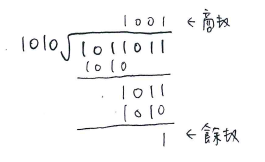 1001 ← 商数
1010 1011011
1010
1011
1010
1 ← 餘数